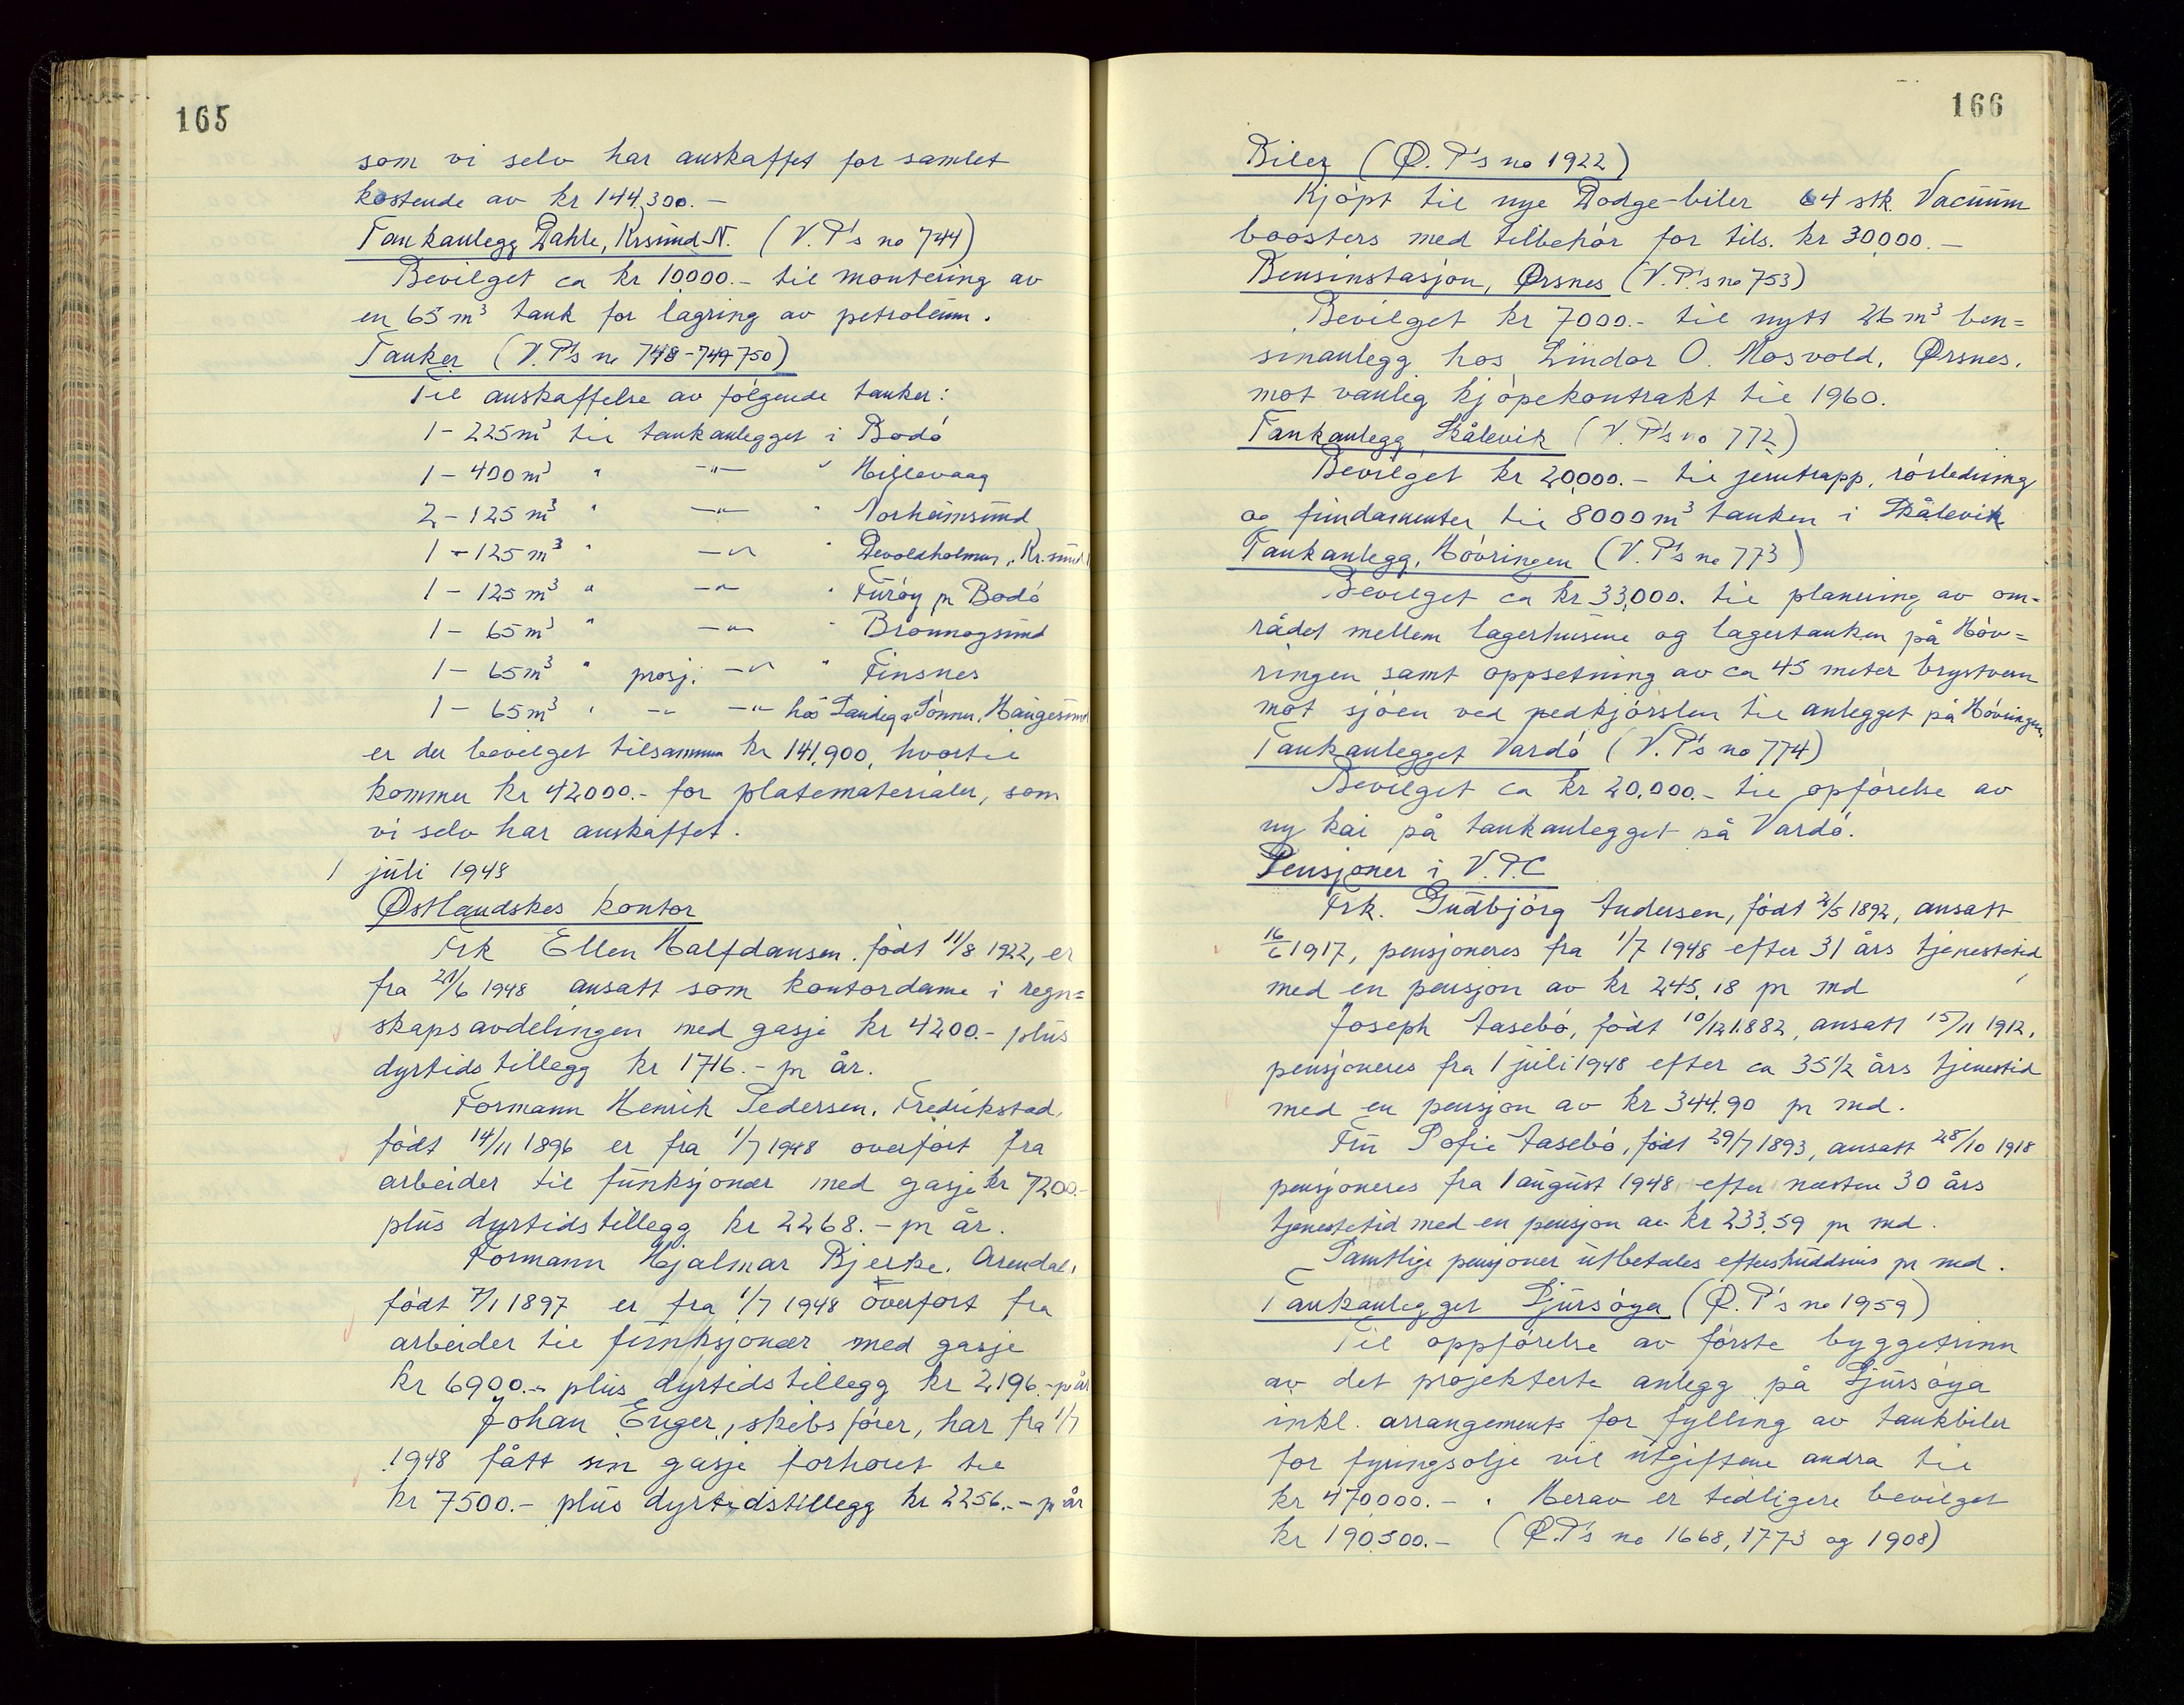 165
som vi selv har anskaffet for samlet
kostende av kr 144.300.-
Tankanlegg Dahle, Krsund N. (V.P's no 744)
Bevilget ca kr 10.000.- til montering av
en 65 m³ tank for lagring av petroleum.
Tanker (V.P's no 748-749-750)
Til anskaffelse av følgende tanker:
1 - 225 m³ til tankanlegget i Bodø
1 - 400 m³ " -"- " Hillevaag
2 - 125 m³ " -"- " Norheimsund
1 - 125 m³ " -"- " Devoldholmen, Kr.sund
1 - 125 m³ " -"- " Furøy pr Bodø
1 - 65 m³ " -"- " Brønnøysund
1 - 65 m³ " prosj. -"- " Finsnes
1 - 65 m³ " -"- -"- hos Sønner, Haugesund
er der bevilget tilsammen kr 141.900, hvortil
kommer kr 42000.- for platematerialer, som
vi selv har anskaffet.
1 juli 1948
Østlandskes kontor
Frk Ellen Halfdansen, født 11/8 1922, er
fra 21/6 1948 ansatt som kontordame i regn=
skapsavdelingen med gasje kr 4200.- plus
dyrtidstillegg kr 1716.- pr år.
Formann Henrik Pedersen, Fredrikstad,
født 14/11 1896 er fra 1/7 1948 overført fra
arbeider til funksjonær med gasje kr 7200.-
plus dyrtidstillegg kr 2268.- pr år.
Formann Hjalmar Bjerke, Arendal,
født 7/1 1897 er fra 1/7 1948 overført fra
arbeider til funksjonær med gasje
kr 6900.- plus dyrtidstillegg kr 2196.- pr år
Johan Enger, skibsfører, har fra 1/7
1948 fått sin gasje forhøiet til
kr 7500.- plus dyrtidstillegg kr 2256.- pr år
166
Biler (Ø.P's no 1922)
Kjøpt til nye Dodge-biler 64 stk. Vacuum
boosters med tilbehør for tils. kr 30.000.-
Bensinstasjon, Ørsnes (V.P.'s no 753)
Bevilget kr 7000.- til nytt 26 m³ ben=
sinanlegg hos Lindor O. Mosvold, Ørsnes,
mot vanlig kjøpekontrakt til 1960.
Tankanlegg Skålevik (V.P's no 772)
Bevilget kr 20.000.- til jerntrapp, rørledning
og fundamenter til 8000 m³ tanken i Skålevik
Tankanlegg, Høvringen (V.P's no 773)
Bevilget ca kr 33.000. til planering av om-
rådet mellem lagerhusene og lagertanken på Høv=
ringen samt oppsetning av ca 45 meter brystvern
mot sjøen ved nedkjørslen til anlegget på Høvringen.
Tankanlegget Vardø (V.P's no 774)
Bevilget ca kr 20.000.- til opførelse av
ny kai på tankanlegget på Vardø.
Pensjoner i V.P.C
Frk. Gudbjørg Andersen, født 2/5 1892, ansatt
16/6 1917, pensjoneres fra 1/7 1948 efter 31 års tjenestetid
med en pensjon av kr 245.18 pr md
Joseph Aasebø, født 10/12 1882, ansatt 15/11 1912,
pensjoneres fra 1 juli 1948 efter ca 35 1/2 års tjenestid
med en pensjon av kr 344.90 pr md.
Fru Sofie Aasebø, født 29/7 1893, ansatt 28/10 1918
pensjoneres fra 1 august 1948 efter næsten 30 års
tjenestetid med en pensjon av kr 233.59 pr md.
Samtlige pensjoner utbetales efterskuddsvis pr md.
Tankanlegget Sjursøya (Ø.P's no 1959)
Til oppførelse av første byggetrinn
av det projekterte anlegg på Sjursøya
inkl. arrangements for fylling av tankbiler
for fyringsolje vil utgiftene andra til
kr 470000.-. Herav er tidligere bevilget
kr 190.500.- (Ø.P's no 1668, 1773 og 1908)